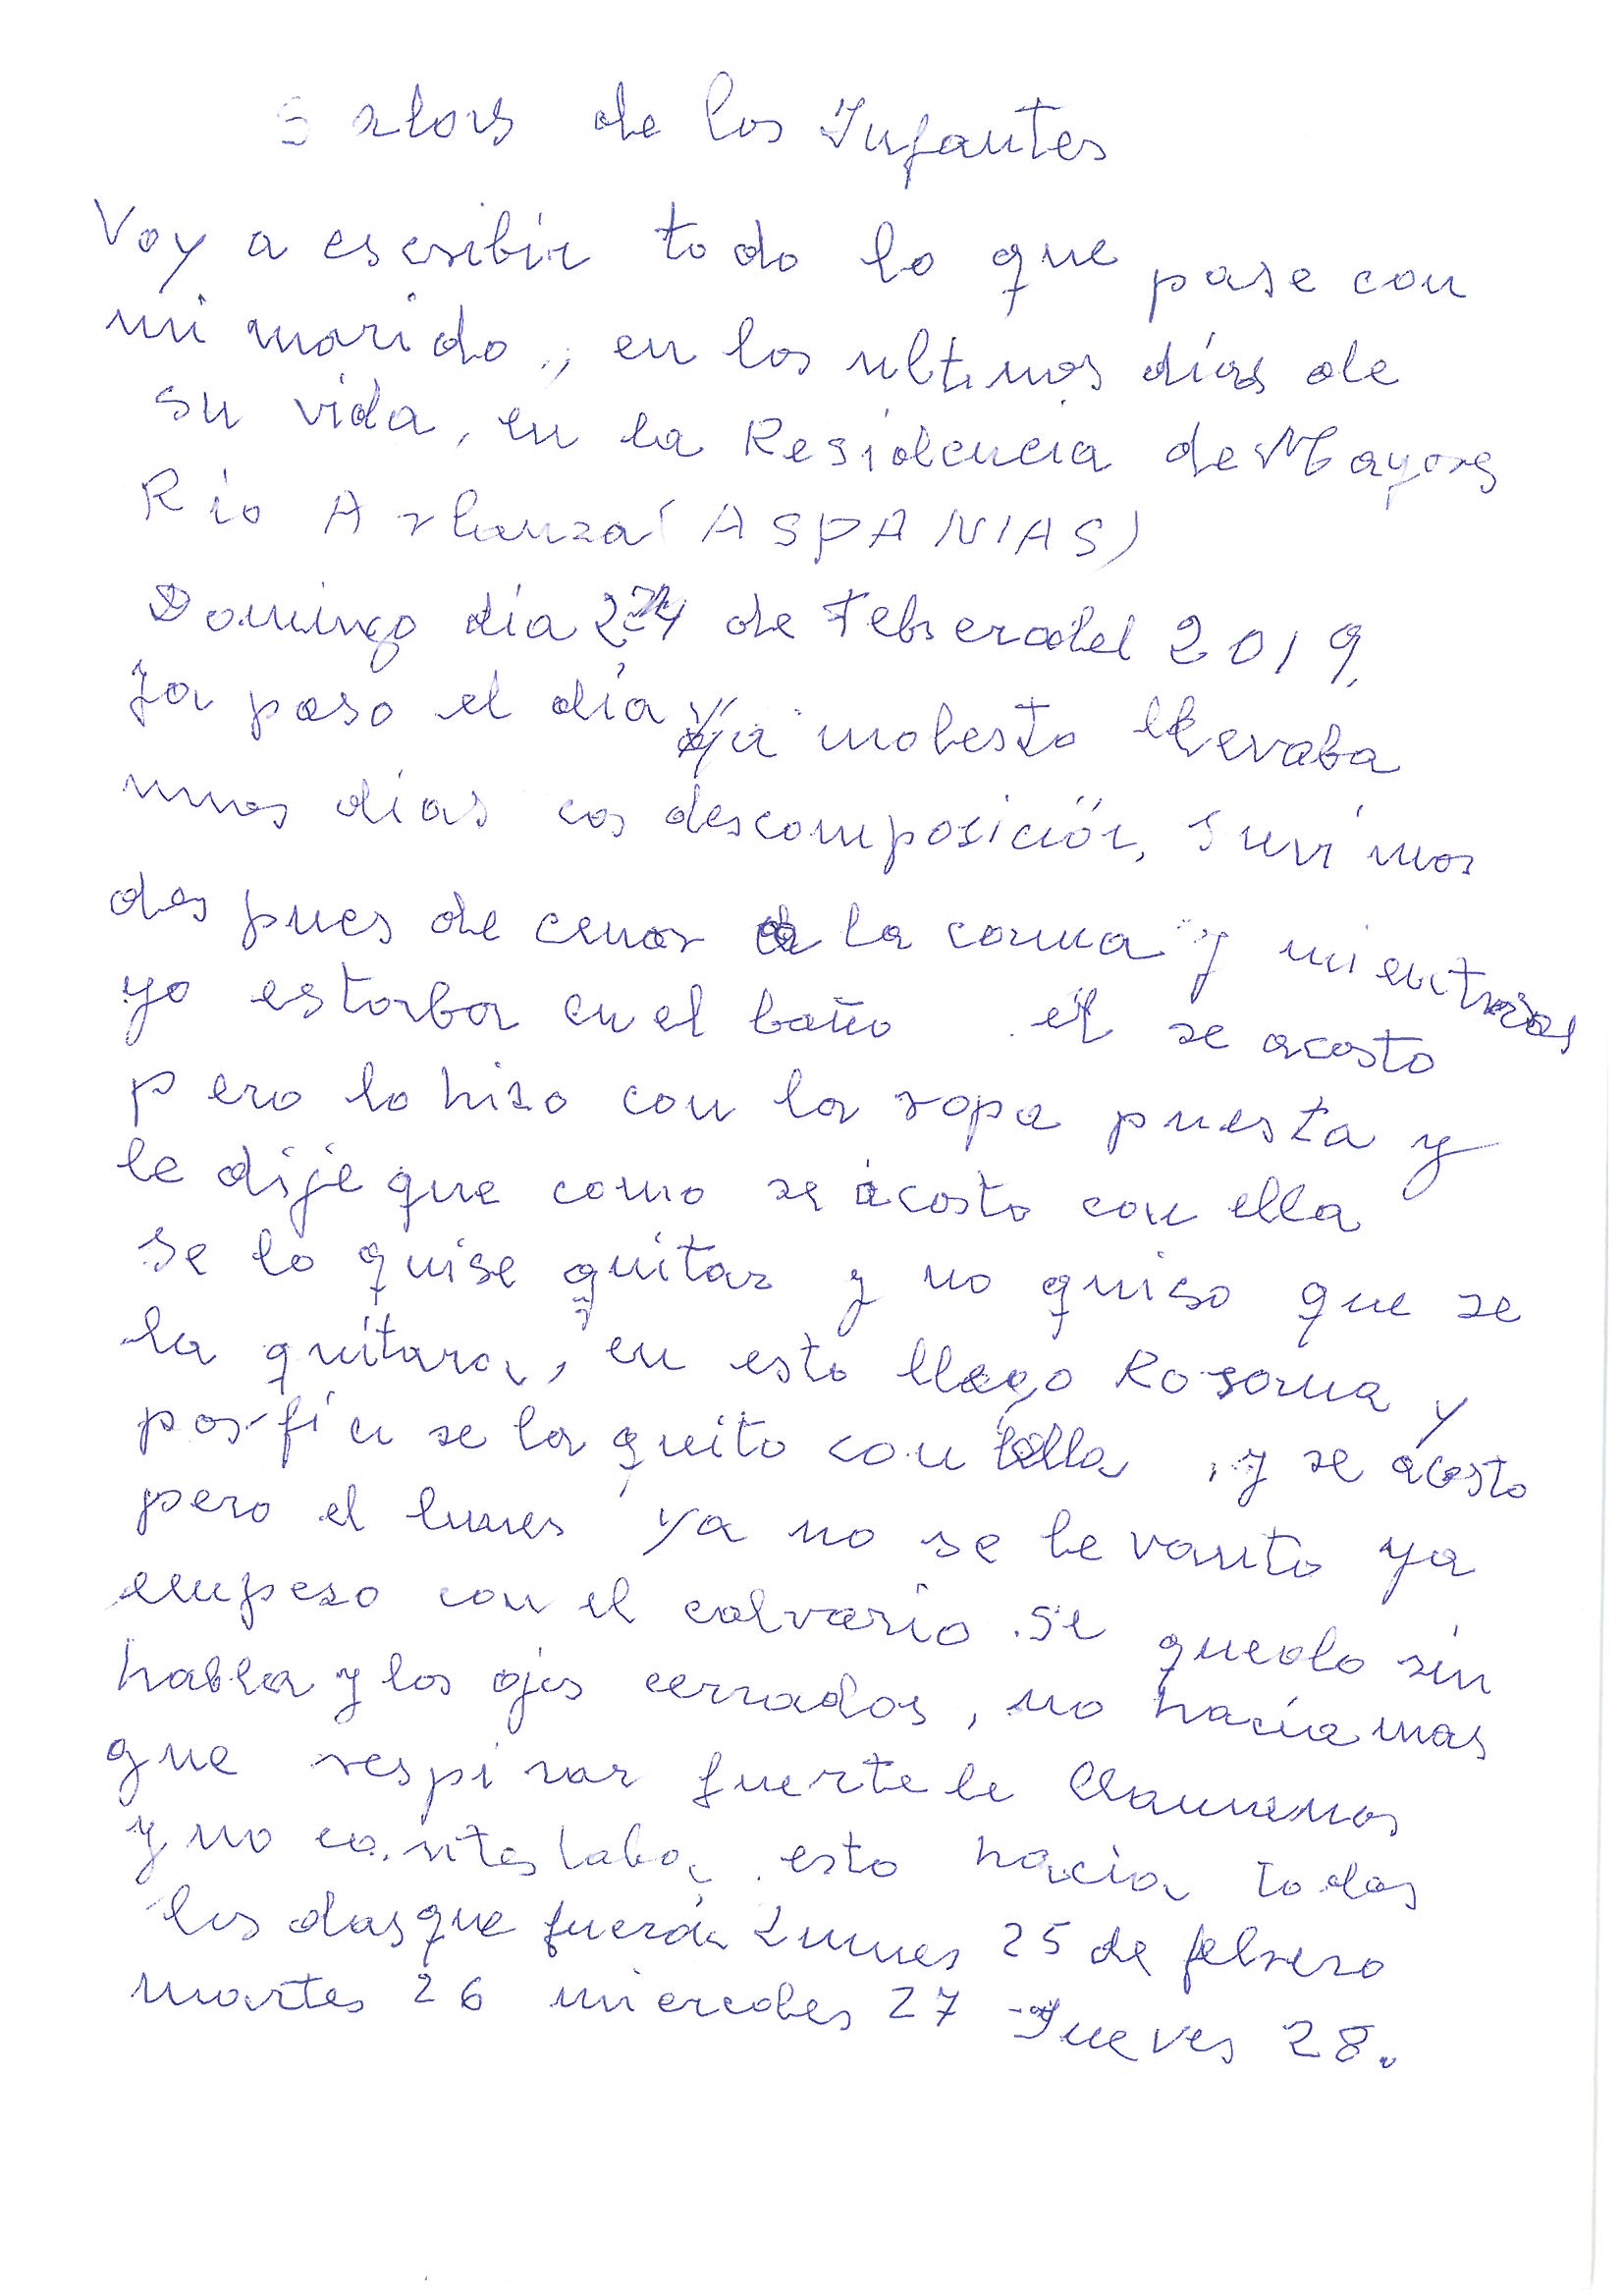 Salors de los Infantes
Voy a escribir todo lo que pase con
mi marido, en los ultimos días de
su vida, en la Residencia de Mayores
Rio Arlanza (ASPANIAS)
Domingo día 24 de Febrero del 2019,
paso el día ya mobesto llevaba
unos días cos descomposición, suvimos
despues de cenar a la cama y mientras
yo estorba en el baño él se acosto
pero lo hizo con la ropa puesta y
le dije que como se acosto con ella
se lo quise quitar y no quiso que se
la quitara, en esto llego Rosana y
por fin se la quito con ella, y se acosto
pero el lunes ya no se levanto ya
empeso con el calvario se quedo sin
habla y los ojos cerrados, no hacía mas
que respirar fuerte le llamamos
y no contestaba, esto hacia todos
los das que fuerón Lunes 25 de febrero
martes 26 miercoles 27 Jueves 28.